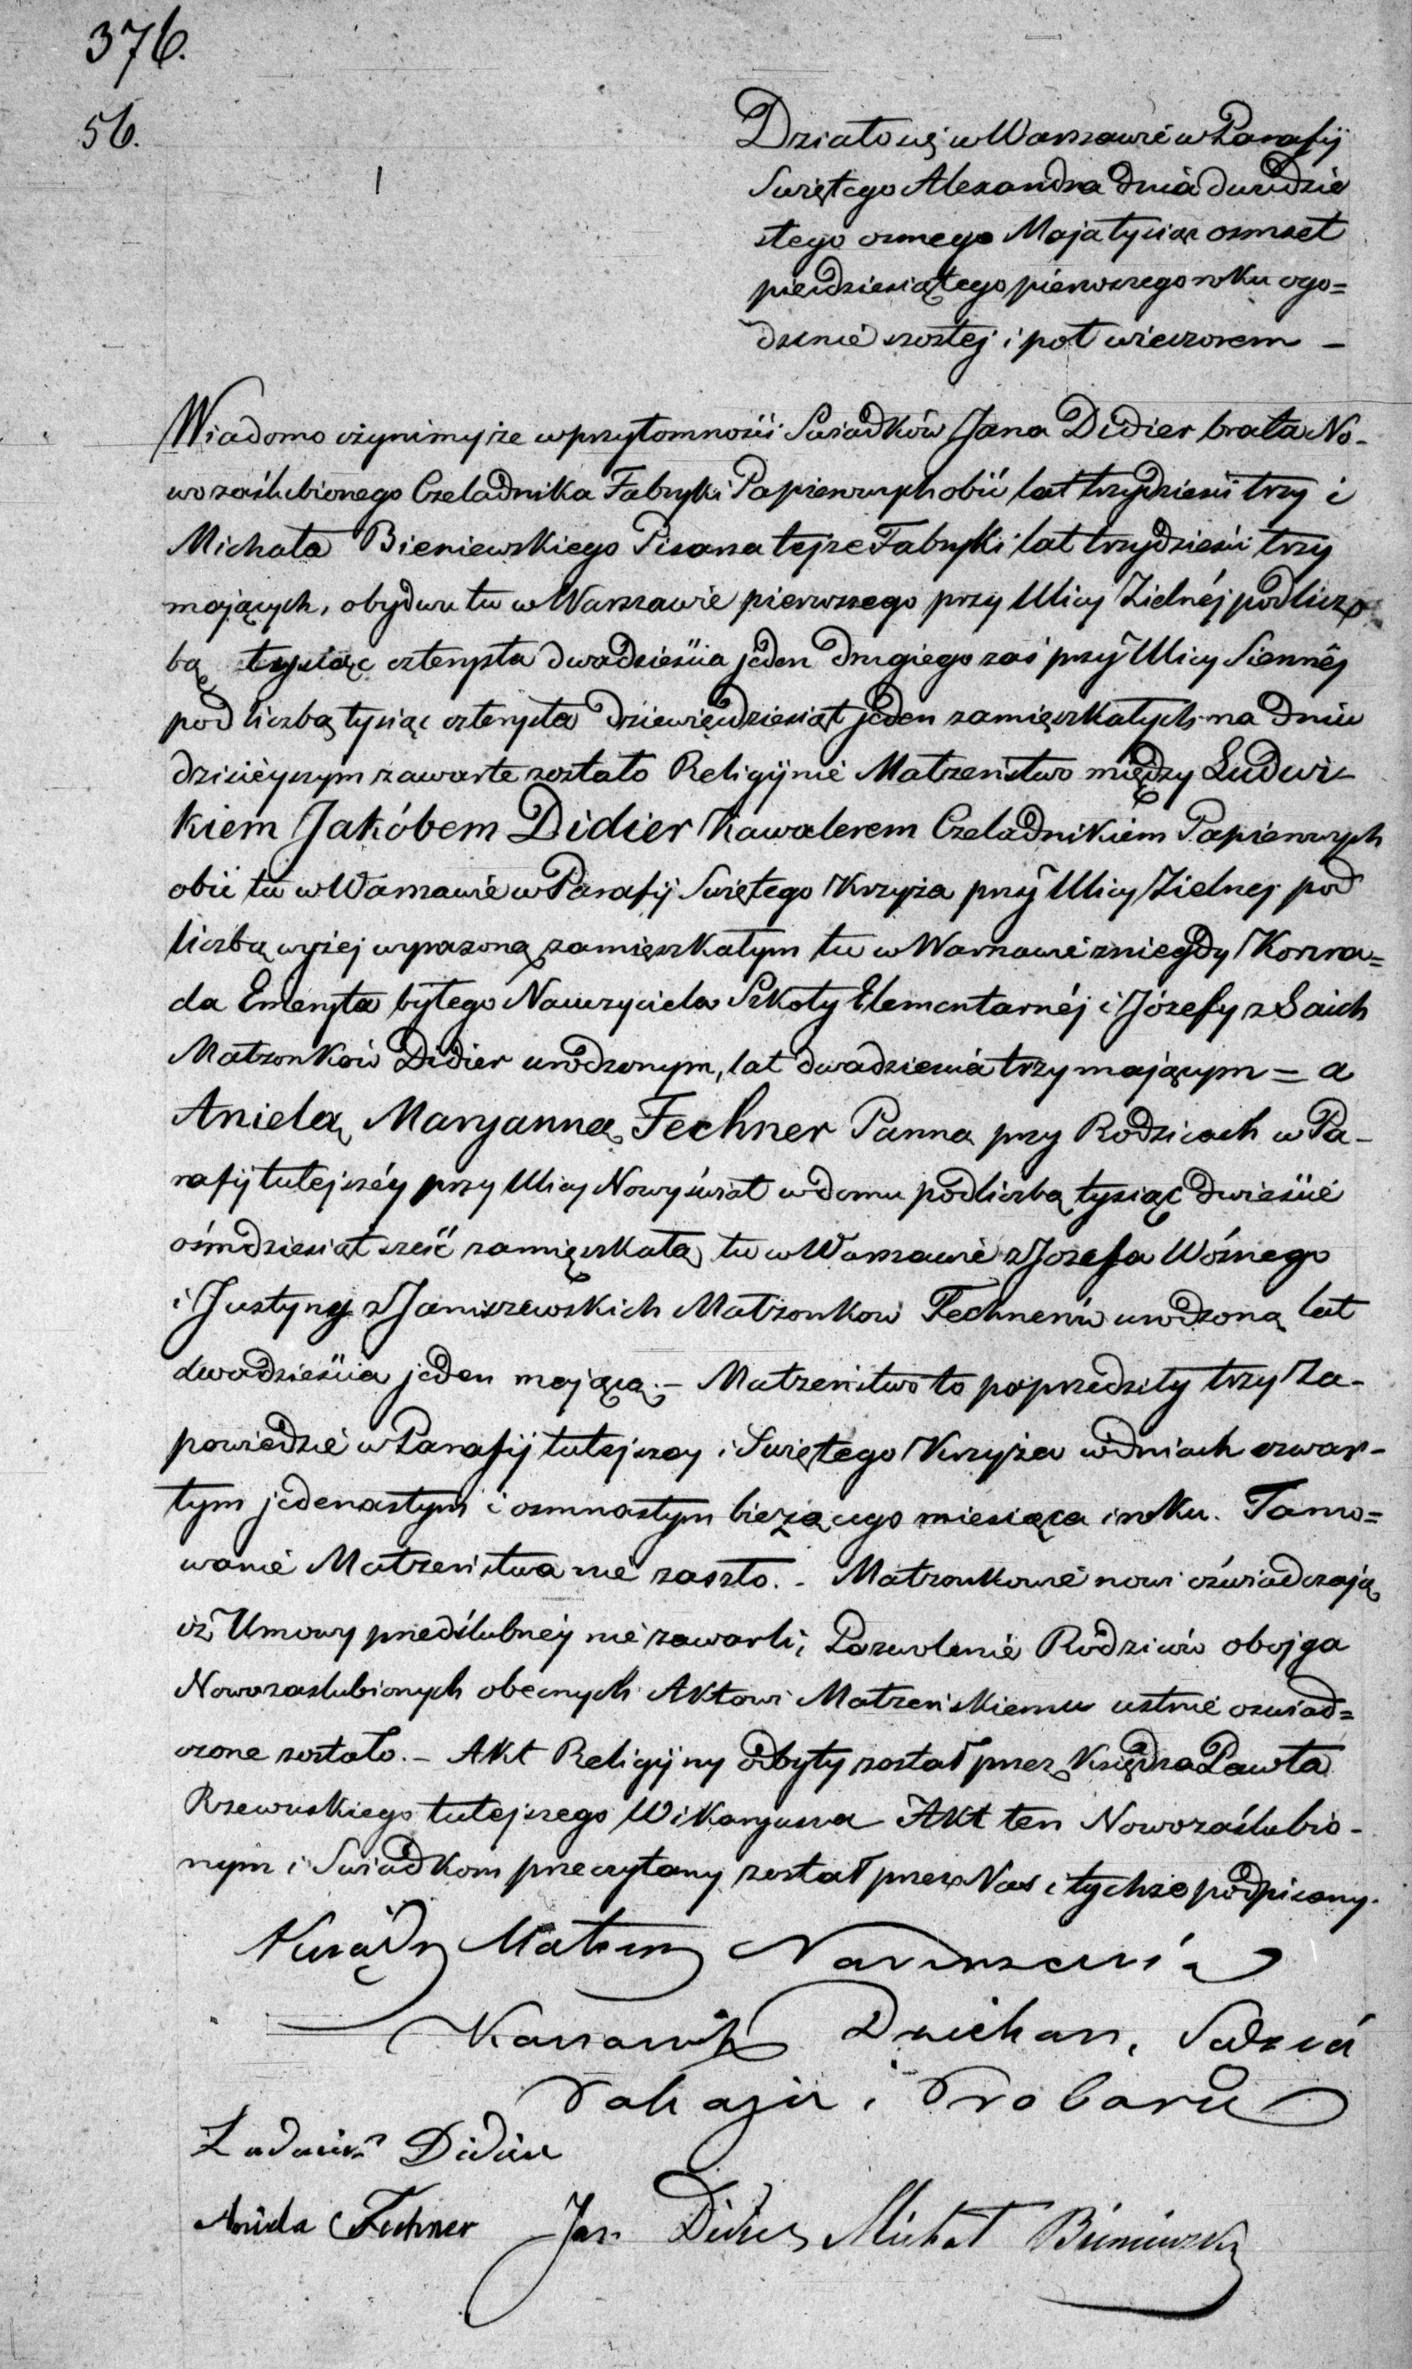 376.
56.
Działo się w Warszawie w Parafij
Swiętego Alexandra dnia dwudzie
stego osmego Maja tysiąc osmset
pierdziesiątego piérwszego roku ogo=
dzinie szostej i poł wieczorem –
Wiadomo czynimy że w przytomności Swiadków Jana Didier brata No-
wozaślubionego Czeladnika Fabryki Papierowych obić lat trzydzieści trzy i
Michała Bieniewskiego Pisarza tejże Fabryki lat trzydzieści trzy
mających, obydwu tu w Warszawie pierwszego przy Ulicy Zielnéj pod licz
bą tysiąc czterysta dwadzieścia jeden drugiego zaś przy Ulicy Siennéj
pod liczbą tysiąc czterysta dziewięćdziesiąt jeden zamięszkałych na dniu
dzisiéyszym zawarte zostało Religijnie Małżeństwo między Ludwi-
kiem Jakóbem Didier Kawalerem Czeladnikiem Papierowych
obić tu w Warszawie w Parafij Swiętego Krzyża przy Ulicy Zielnej pod
liczbą wyżej wyrazoną zamięszkałym tu w Warszawie zniegdy Konra=
da Emeryta byłego Nauczyciela Szkoły Elementarnéj i Józefy z Saich
Małżonków Didier urodzonym, lat dwadzieścia trzy mającym = a
Anielą Maryanną Fechner Panną przy Rodzicach w Pa-
rafij tutejszéy przy Ulicy Nowyświat w domu pod liczbą tysiąc dwieście
ośmdziesiąt sześć zamięszkałą tu w Warszawie z Jozefa Woźnego
i Justyny z Janiszewskich Małżonkow Fechnerów urodzoną lat
dwadzieścia jeden mającą. – Małżeństwo to poprzedziły trzy Za-
powiedzie w Parafij tutejszey i Swiętego Krzyża w dniach czwar-
tym jedenastym i osmnastym bieżącego miesiąca i roku. Tamo=
wanie Małżeństwa nie zaszło. – Małżonkowie nowi oświadczają
iż Umowy przedślubnéj nie zawarli; Pozwolenie Rodziców obojga
Nowozaslubionych obecnych Aktowi Małżeńskiemu ustnie oswiad=
czone zostało. – Akt Religijny odbyty został przez Księdza Pawła
Rzewuskiego tutejszego Wikaryusza Akt ten Nowozaślubio-
nym i Swiadkom przeczytany został przez Nas i tychże podpisany.
Ksiądz Mateusz
Kanonik Dziekan, Sędzia
Pokoju i Proboszcz
Ludwik Didier
Aniela Fechner Jan Didier Michał Bieniewski